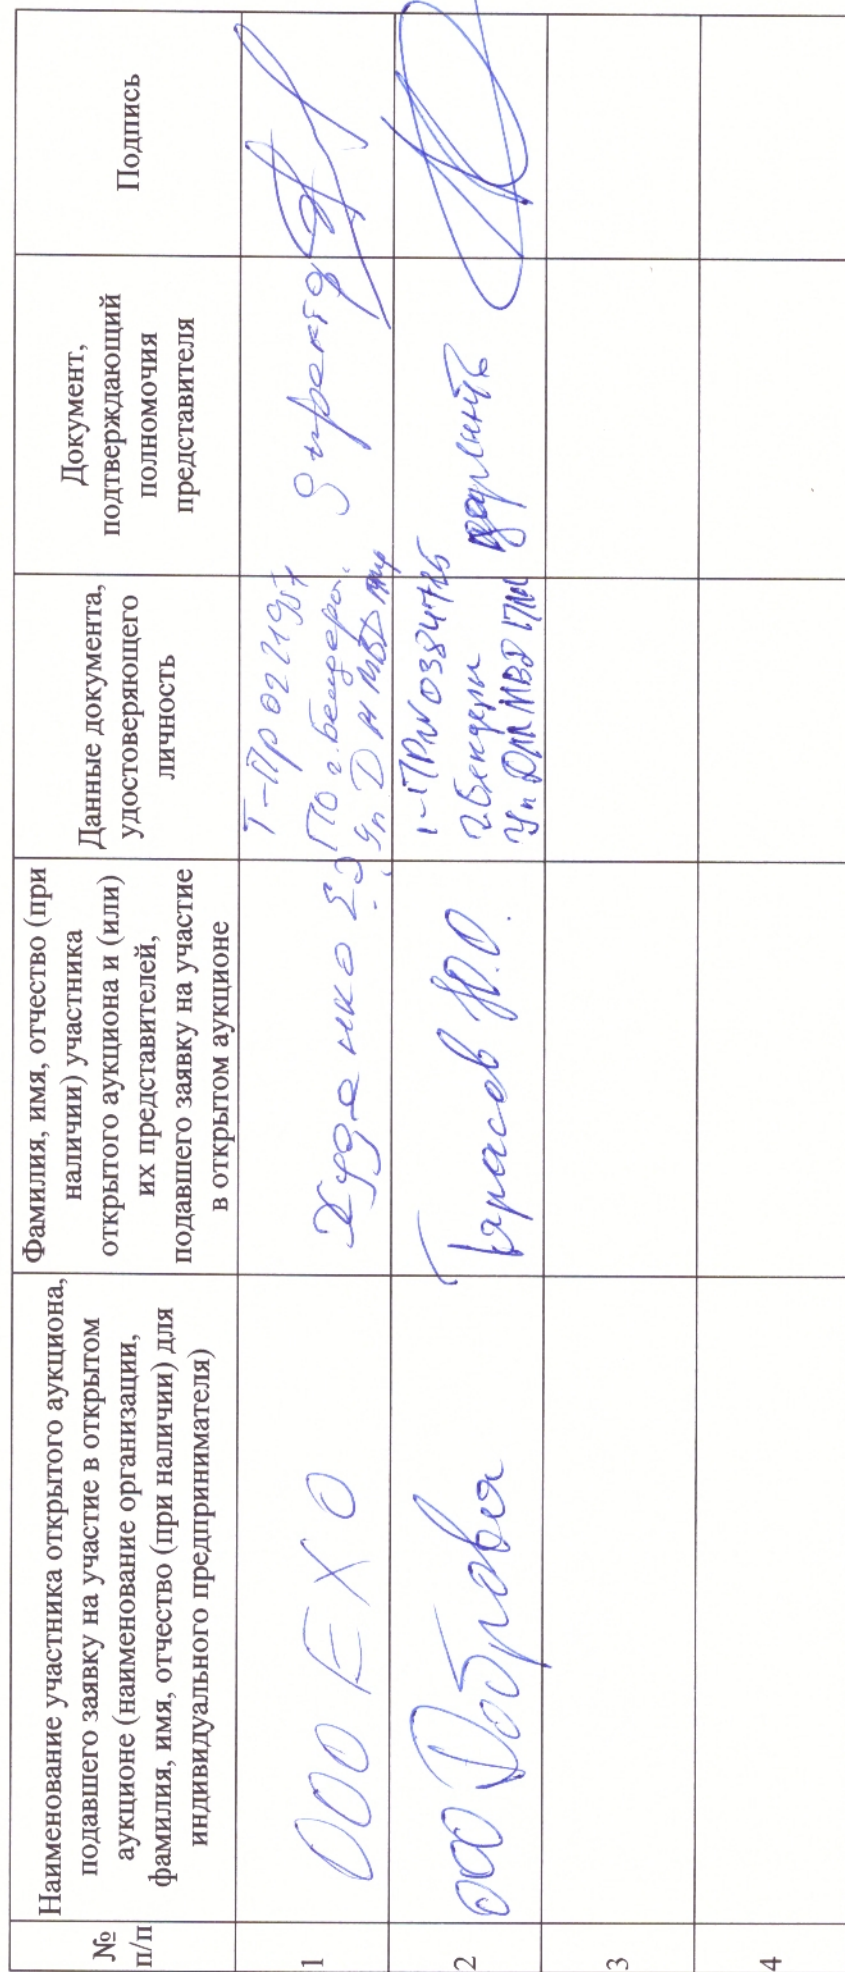 №
п/п
Наименование участника открытого аукциона,
подавшего заявку на участие в открытом
аукционе (наименование организации,
фамилия, имя, отчество (при наличии) для
индивидуального предпринимателя)
Фамилия, имя, отчество (при
наличии) участника
открытого аукциона и (или)
их представителей,
подавшего заявку на участие
в открытом аукционе
Данные документа,
удостоверяющего
личность
Документ,
подтверждающий
полномочия
представителя
Подпись
1
ООО EXO
I-ПР 0221907
ПО г. Бендеры
Уп D Н МВД
директор
2
ООО Добровия
Тарасов Ю.О.
I-ПР № 0384725
г. Бендеры
Уп МВД ПМР
3
4